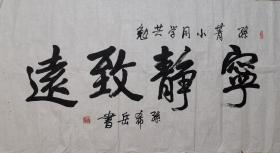 孫菁小同学共勉
寧靜致遠
孫希岳書